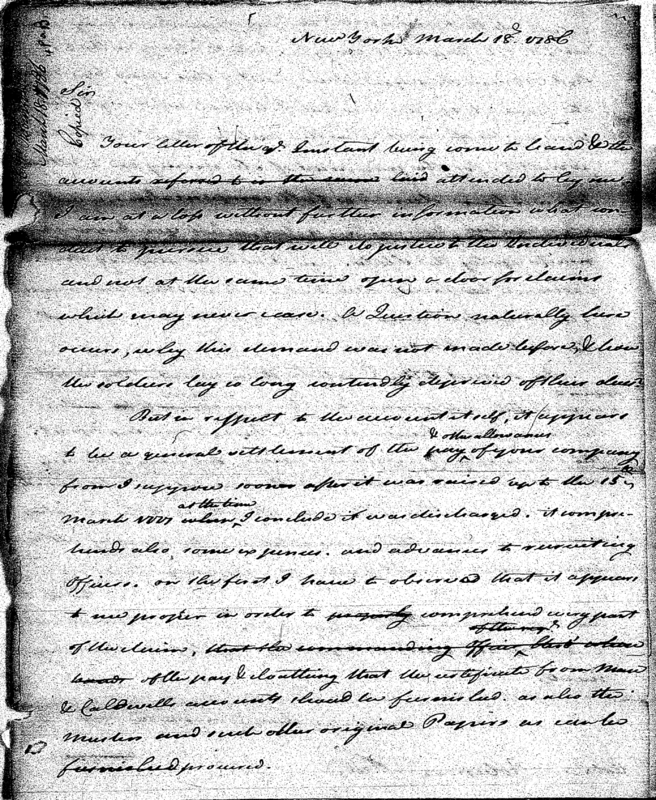 New York March 18th 1786
Sir
Copied
March 18 1786
Your letter of the Instant being come to hand & the
accounts referred to in the same laid attended to by me
I am at a loss without further information what con-
duct to pursue that will do justice to the Individuals
and not at the same time open a door for claims
which may never cease. A Question naturally here
occurs, why this demand was not made before, & how
the soldiers lay so long contendly deprived of their dues
But in respect to the account itself, it appears
to be a general settlement of the pay & other allowances of your company
from I suppose soon after it was raised up to the 15
March at the time when I conclude it was discharged. it compre-
hends also some expences. and advances to recruiting
Officers. on the first I have to observed that it appears
to me proper in order to properly comprehend every part
of the claim, that the commanding Officer of the
of the pay & cloathing that the certificate from
& Caldwells accounts should be furnished. as also the
Musters and such other original Papers as can be
furnished procured.